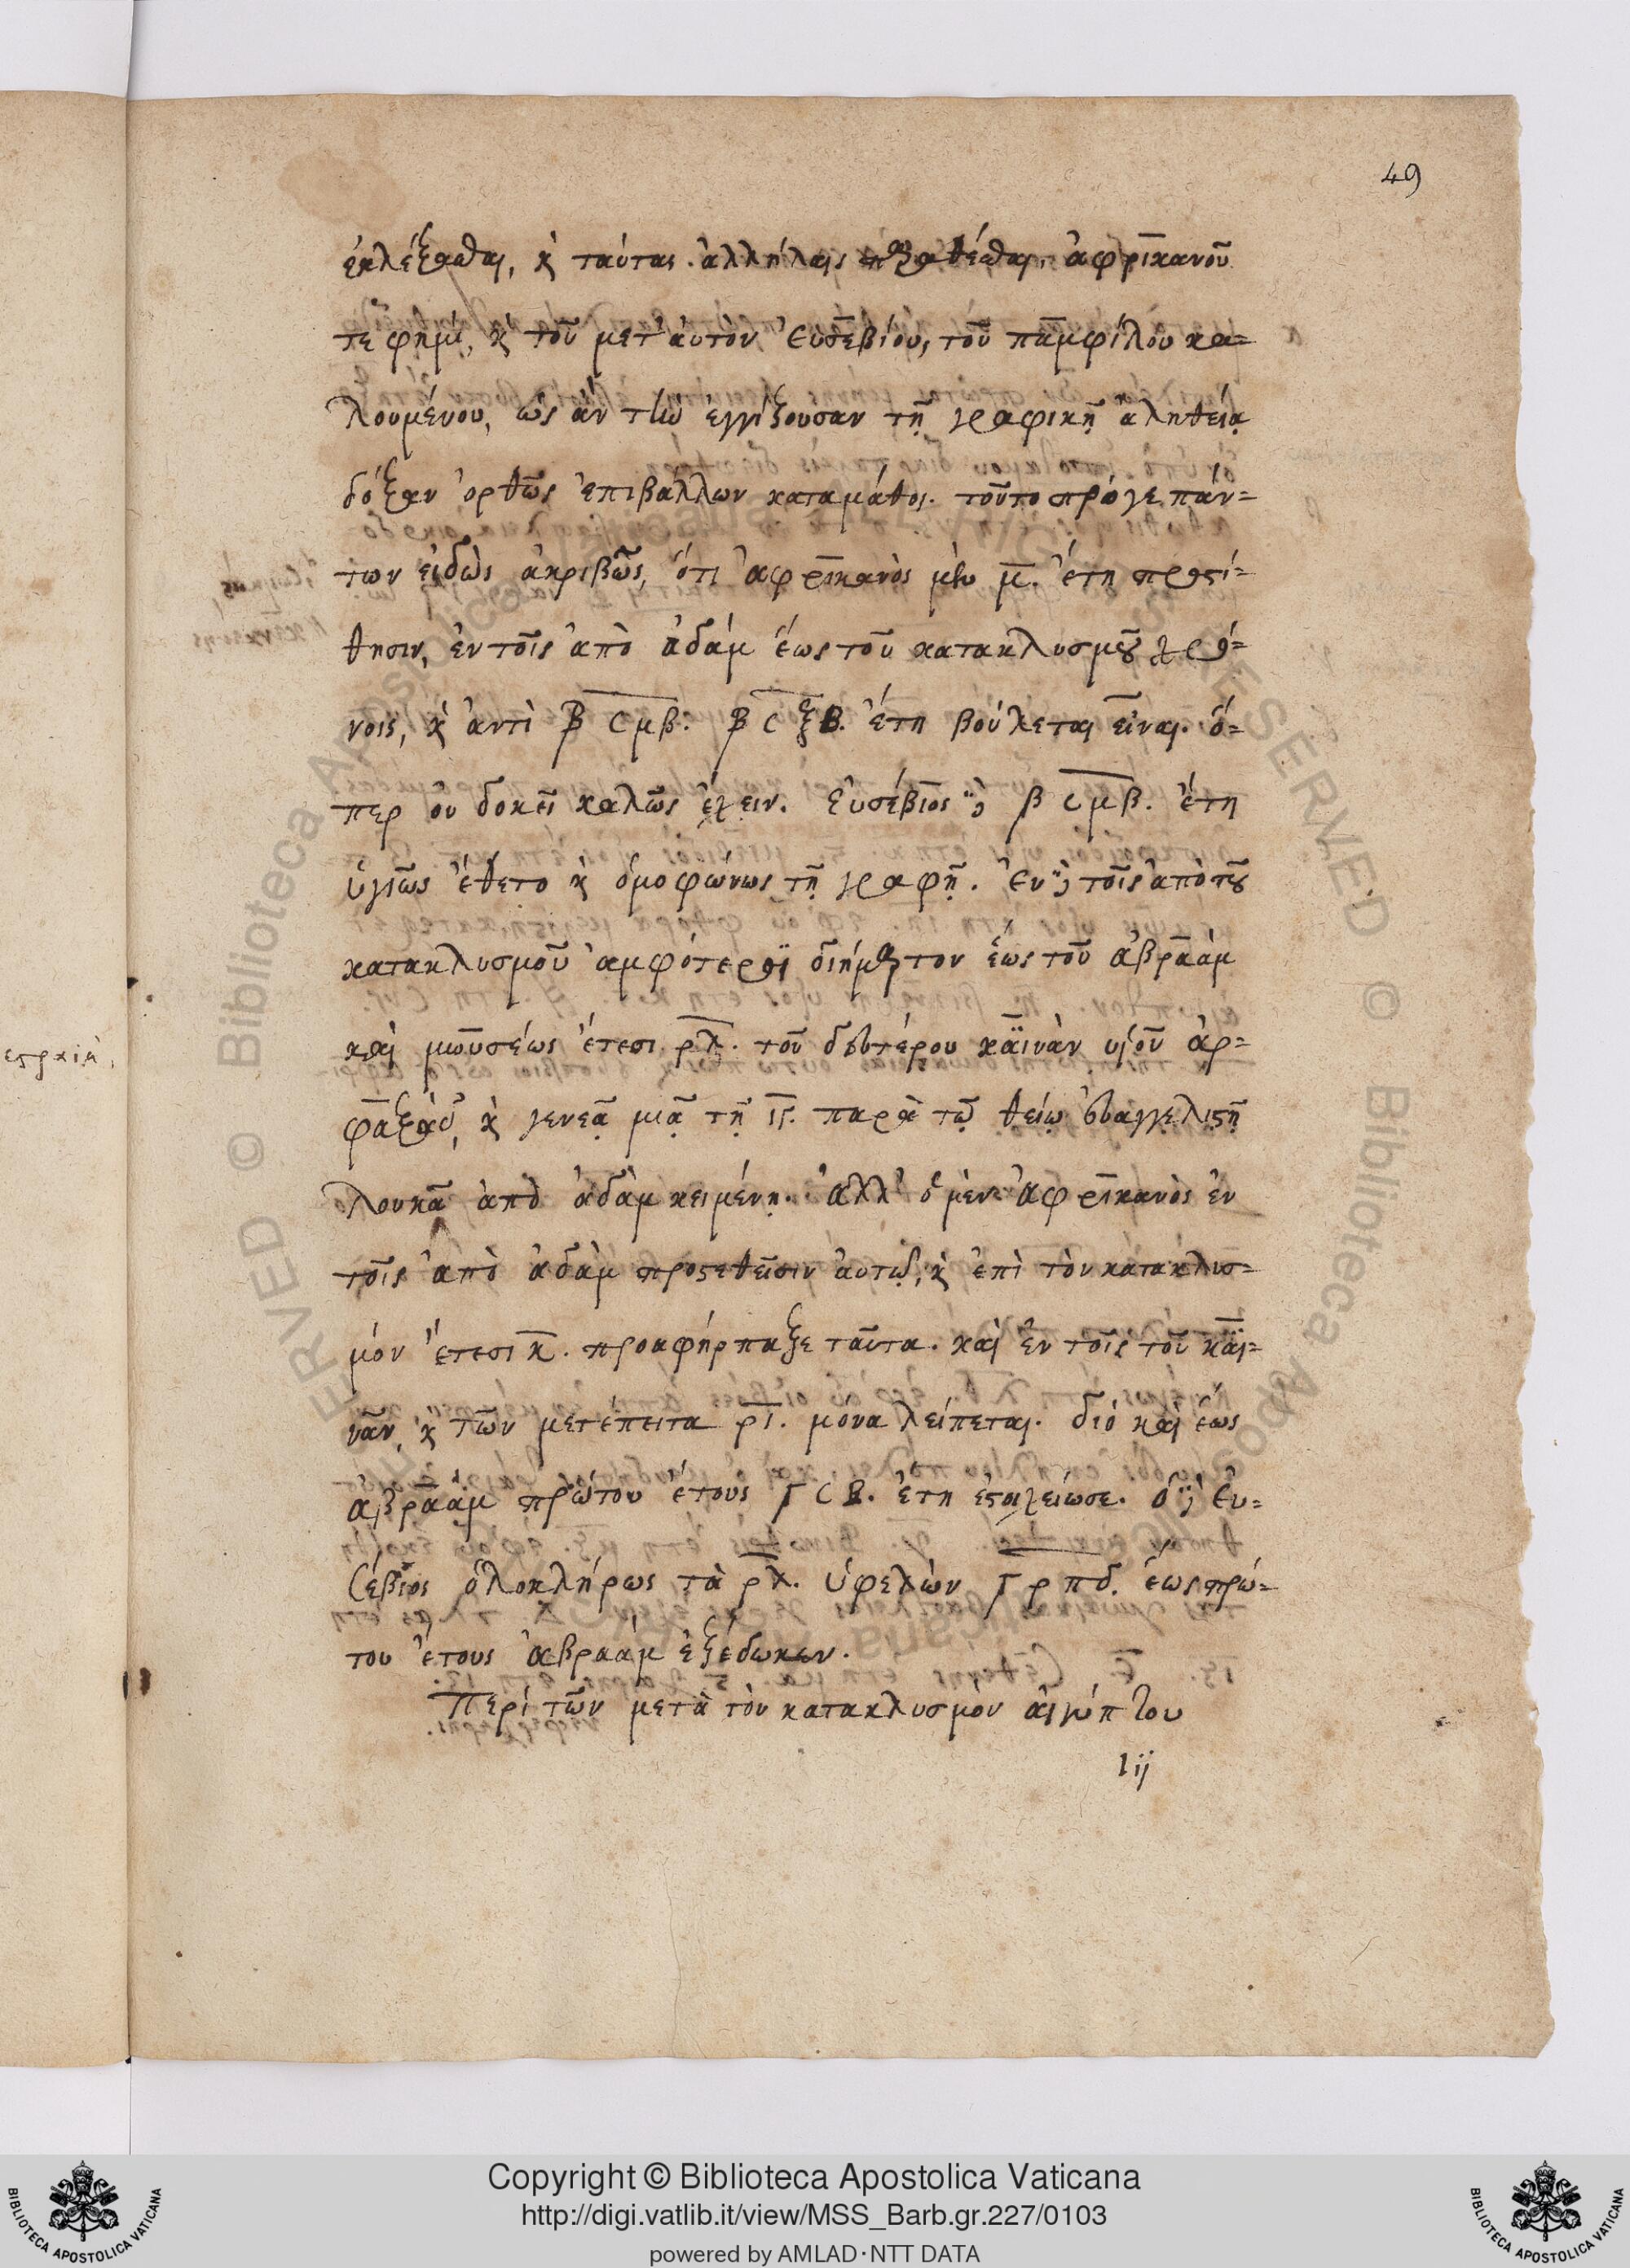 49
ἐκλέξασθαι, κ̀ ταύτας ἀλλήλαις ἀφρικανοῦ
τε φημὶ, κ̀ τοῦ μετ' ἀυτὸν Ἐυσεβίου, τοῦ παμφίλου κα=
λουμένου, ὡς ἀν τὴν ἐγγίζουσαν τῇ γραφικῇ ἀληθείᾳ
δόξαν ὀρθῶς ἐπιβάλλων καταμάθοι. τοῦτο πρόγε πάν=
των εἰδὼς ἀκριβῶς, ὅτι ἀφρικανὸς μὲν μ̅. ἔτη προστί=
θησιν, ἐν τοῖς ἀπὸ ἀδάμ ἕως τοῦ κατακλυσμοῦ χρό=
νοις, κ̀ ἀντὶ βσμβ. βσξβ. ἔτη βούλεται εἶναι. ὅ=
περ ὀυ δοκεῖ καλῶς ἔχειν. Ἐυσέβιος δὲ βσμβ. ἔτη
ὑγιῶς ἔθετο κ̀ ὁμοφώνως τῇ γραφῇ. Ἐν δὲ τοῖς ἀπὸ τοῦ
κατακλυσμοῦ ἀμφότεροι διήμαρτον ἕως τοῦ ἀβραὰμ
καὶ μωϋσέως ἔτεσι ρλ. τοῦ δευτέρου καϊνὰν υἱοῦ ἀρ=
φαξὰδ, κ̀ γενεᾷ μιᾷ τῇ ιγ. παρὰ τῷ θείῳ ἐυαγγελιστῇ
Λουκᾷ ἀπὸ ἀδὰμ κειμένῃ. ἀλλ' ὁ μὲν ἀφρικανὸς ἐν
τοῖς ἀπὸ ἀδὰμ προστεθεῖσιν ἀυτῷ, κ̀ ἐπὶ τὸν κατακλυσ=
μόν ἔτεσι κ. προαφήρπαξε ταῦτα. καὶ ἐν τοῖς τοῦ καϊ=
νᾶν, κ̀ τῶν μετέπειτα ρι. μόνα λείπεται. διό καὶ ἕως
αβραὰμ πρώτου ἔτους γσβ. ἔτη ἐστοιχείωσε. ὁ δὲ Ἐυ=
σέβιος ὁλοκλήρως τὰ ρλ. ὑφελὼν γρπδ. ἕως πρώ=
του ἔτους ἀβραάμ ἐξέδωκεν.
Περὶ τῶν μετὰ τὸν κατακλυσμον ἀιγύπτου
lij
Copyright © Biblioteca Apostolica Vaticana
http://digi.vatlib.it/view/MSS_Barb.gr.227/0103
powered by AMLAD·NTT DATA